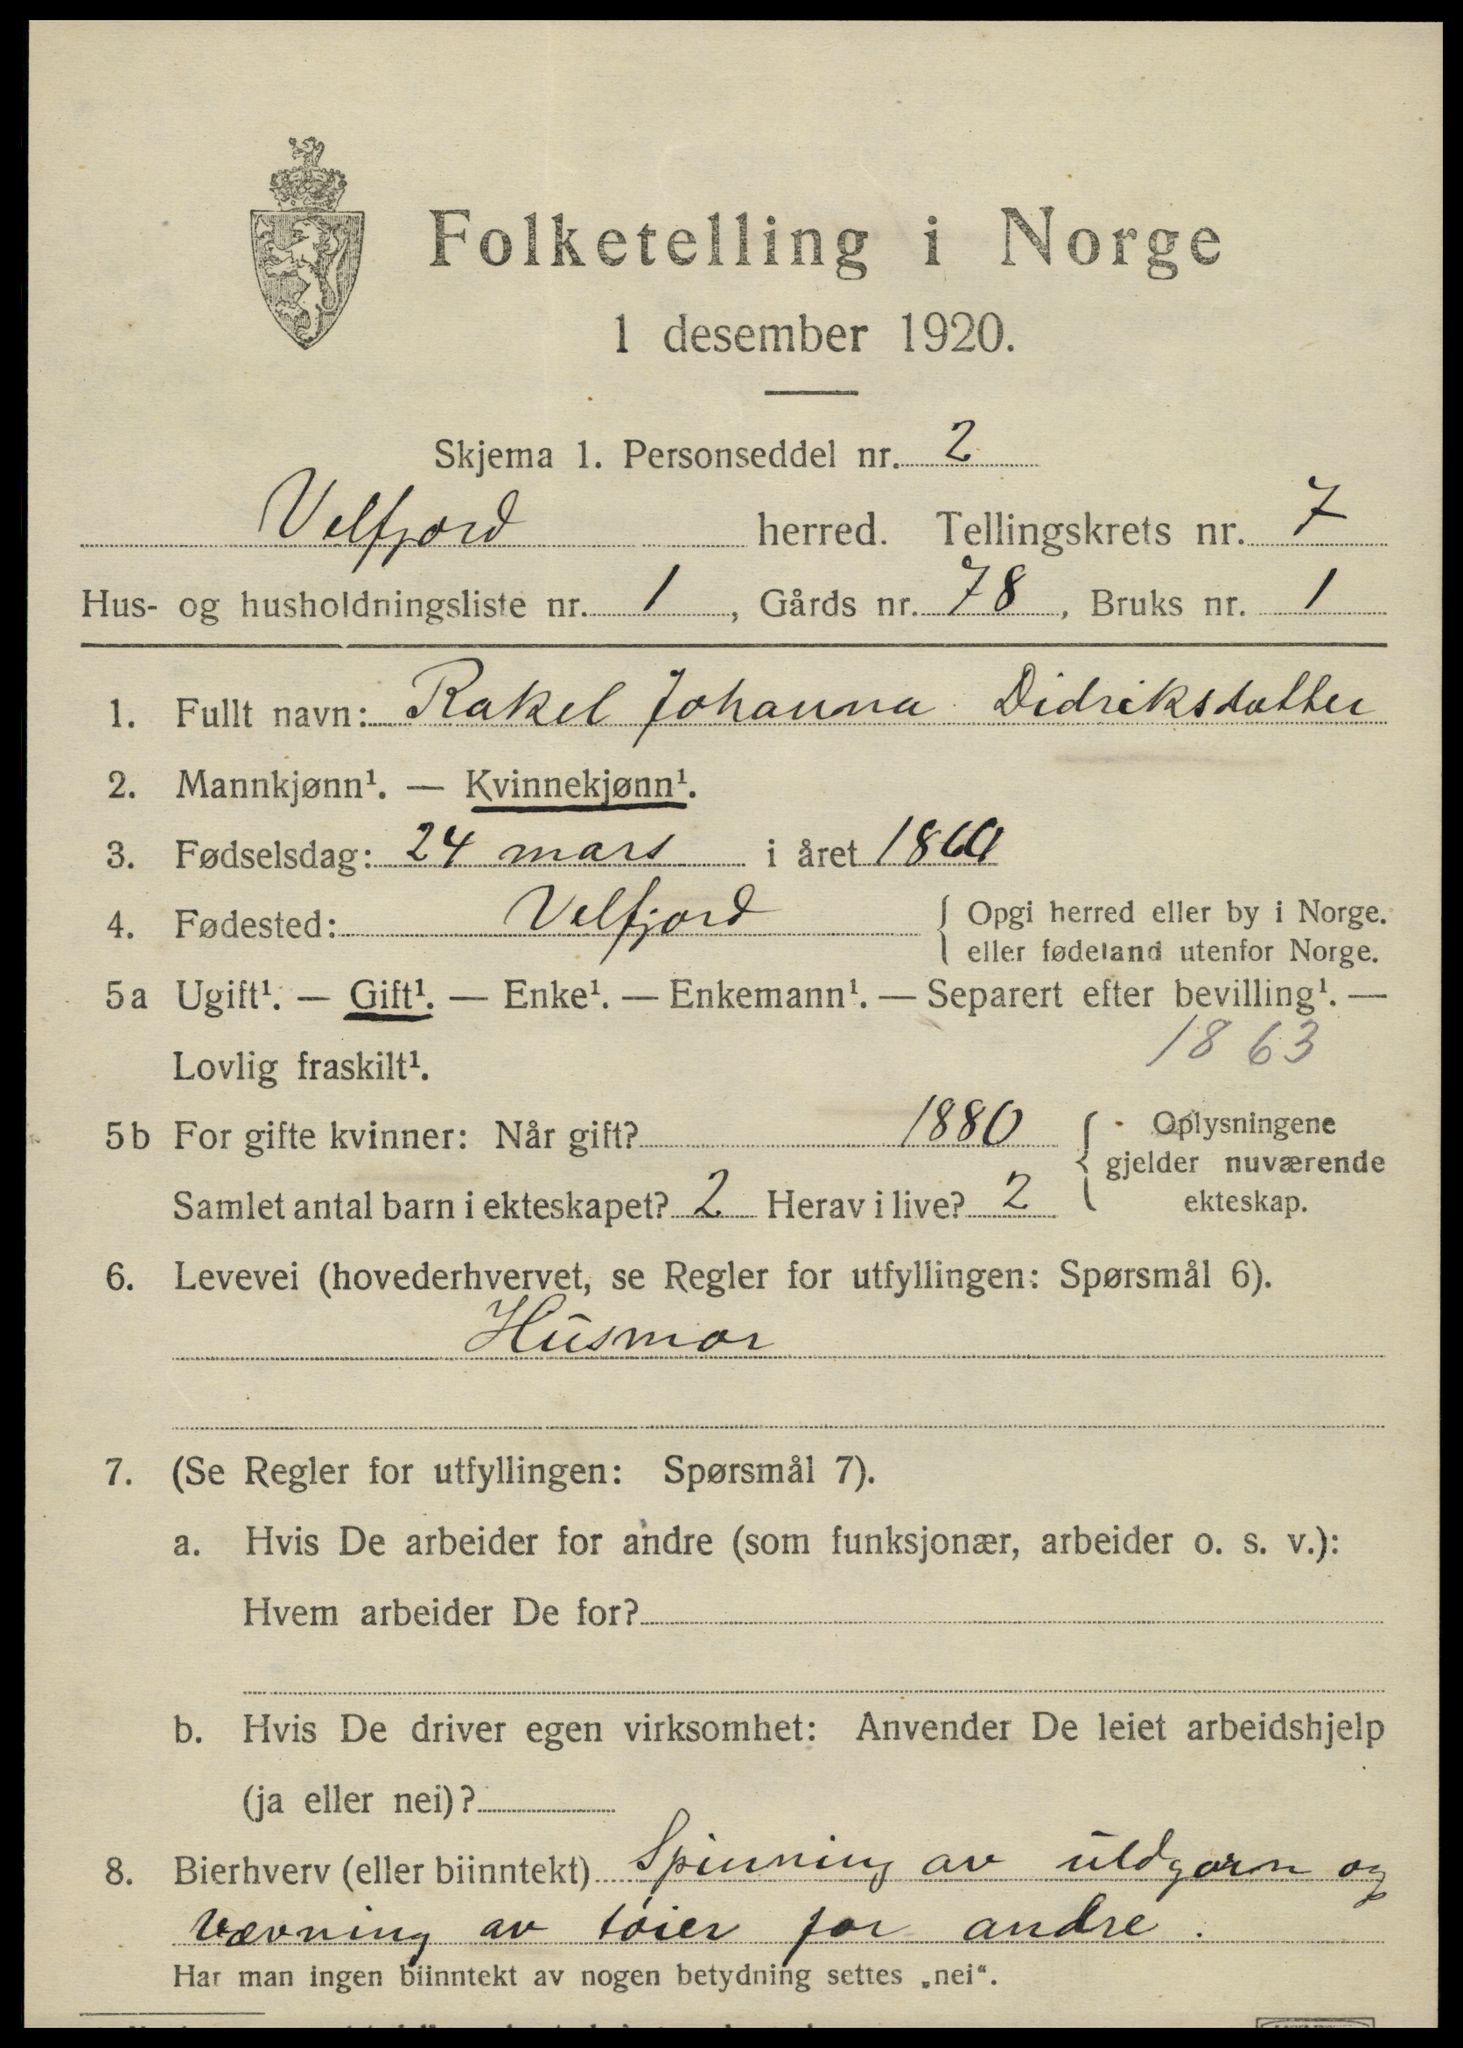 Folketelling i Norge
1 desember 1920.
Skjema 1. Personseddel nr. 2
Velfjord herred. Tellingskrets nr. 7
Hus- og husholdningsliste nr. 1, Gårds nr. 78, Bruks nr. 1
1. Fullt navn: Rakel Johanna Didriksdatter
2. Mannkjønn¹. — Kvinnekjønn¹.
3. Fødselsdag: 24 mars i året
4. Fødested: Velfjord { Opgi herred eller by i Norge.
eller fødeland utenfor Norge.
5a Ugift¹. — Gift¹. — Enke¹. — Enkemann¹. — Separert efter bevilling¹. —
1863
Lovlig fraskilt¹.
5b For gifte kvinner: Når gift? 1880 { Oplysningene
gjelder nuværende
Samlet antal barn i ekteskapet? 2 Herav i live? 2 ekteskap.
6. Levevei (hovederhvervet, se Regler for utfyllingen: Spørsmål 6).
Husmor
7. (Se Regler for utfyllingen: Spørsmål 7).
a. Hvis De arbeider for andre (som funksjonær, arbeider o. s. v.):
Hvem arbeider De for?
b. Hvis De driver egen virksomhet: Anvender De leiet arbeidshjelp
(ja eller nei)?
8. Bierhverv (eller biinntekt) Spinning av uldgarn og
Vævning av tøier for andre.
Har man ingen biinntekt av nogen betydning settes „nei“.